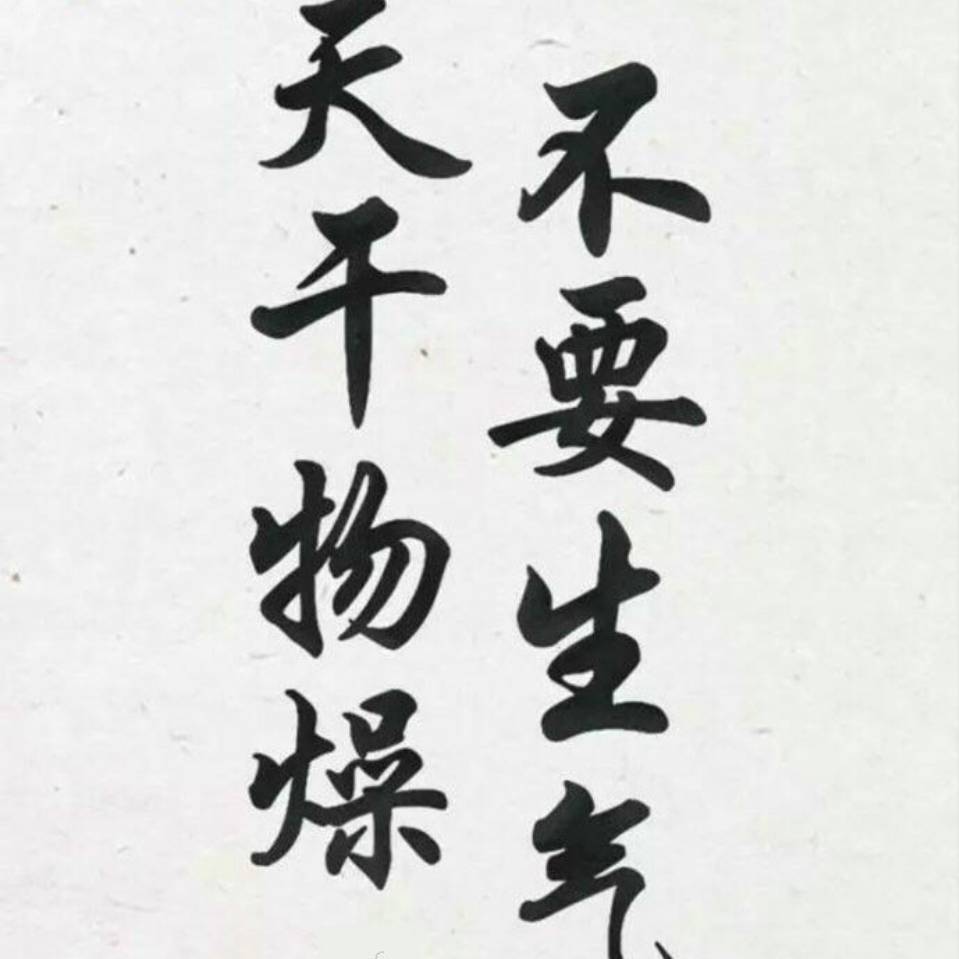 不要生气
天干物燥